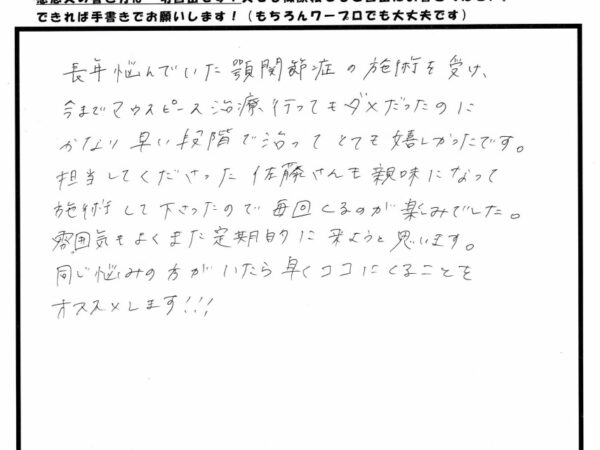 できれば手書きでお願いします！（もちろんワープロでも大丈夫です）
長年悩んでいた顎関節症の施術を受け、
今までマウスピース治療行ってもダメだったのに
かなり早い段階で治ってとても嬉しかったです。
担当してくださった佐藤さんも親味になって
施術して下さったので毎回くるのが楽しみでした。
雰囲気もよくまた定期的に来ようと思います。
同じ悩みの方がいたら早くココにくることを
オススメします!!!